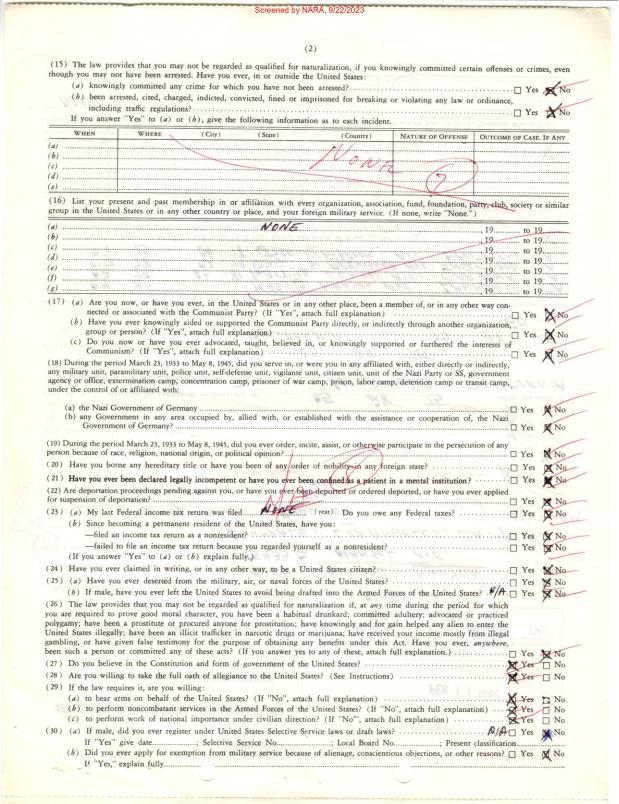 Screened by NARA, 9/22/2023
(2)
(15) The law provides that you may not be regarded as qualified for naturalization, if you knowingly committed certain offenses or crimes, even
though you may not have been arrested. Have you ever, in or outside the United States:
(a) knowingly committed any crime for which you have not been arrested? ☐ Yes ☒ No
(b) been arrested, cited, charged, indicted, convicted, fined or imprisoned for breaking or violating any law or ordinance,
including traffic regulations? ☐ Yes ☒ No
If you answer "Yes" to (a) or (b), give the following information as to each incident.
WHEN WHERE (City) (State) (Country) NATURE OF OFFENSE OUTCOME OF CASE, IF ANY
(a)
(b)
(c) None
(d) 7
(e)
(16) List your present and past membership in or affiliation with every organization, association, fund, foundation, party, club, society or similar
group in the United States or in any other country or place, and your foreign military service. (If none, write "None.")
(a) NONE , 19 to 19
(b) , 19 to 19
(c) , 19 to 19
(d) , 19 to 19
(e) , 19 to 19
(f) , 19 to 19
(g) , 19 to 19
(17) (a) Are you now, or have you ever, in the United States or in any other place, been a member of, or in any other way con-
nected or associated with the Communist Party? (If "Yes", attach full explanation) ☐ Yes ☒ No
(b) Have you ever knowingly aided or supported the Communist Party directly, or indirectly through another organization,
group or person? (If "Yes", attach full explanation) ☐ Yes ☒ No
(c) Do you now or have you ever advocated, taught, believed in, or knowingly supported or furthered the interests of
Communism? (If "Yes", attach full explanation) ☐ Yes ☒ No
(18) During the period March 23, 1933 to May 8, 1945, did you serve in, or were you in any way affiliated with, either directly or indirectly,
any military unit, paramilitary unit, police unit, self-defense unit, vigilante unit, citizen unit, unit of the Nazi Party or SS, government
agency or office, extermination camp, concentration camp, prisoner of war camp, prison, labor camp, detention camp or transit camp,
under the control of or affiliated with:
(a) the Nazi Government of Germany ☐ Yes ☒ No
(b) any Government in any area occupied by, allied with, or established with the assistance or cooperation of, the Nazi
Government of Germany? ☐ Yes ☒ No
(19) During the period March 23, 1933 to May 8, 1945, did you ever order, incite, assist, or otherwise participate in the persecution of any
person because of race, religion, national origin, or political opinion? ☐ Yes ☒ No
(20) Have you borne any hereditary title or have you been of any order of nobility in any foreign state? ☐ Yes ☒ No
(21) Have you ever been declared legally incompetent or have you ever been confined as a patient in a mental institution? ☐ Yes ☒ No
(22) Are deportation proceedings pending against you, or have you ever been deported or ordered deported, or have you ever applied
for suspension of deportation? ☐ Yes ☒ No
(23) (a) My last Federal income tax return was filed NONE (year) Do you owe any Federal taxes? ☐ Yes ☒ No
(b) Since becoming a permanent resident of the United States, have you:
—filed an income tax return as a nonresident? ☐ Yes ☒ No
—failed to file an income tax return because you regarded yourself as a nonresident? ☐ Yes ☒ No
(If you answer "Yes" to (a) or (b) explain fully.)
(24) Have you ever claimed in writing, or in any other way, to be a United States citizen? ☐ Yes ☒ No
(25) (a) Have you ever deserted from the military, air, or naval forces of the United States? ☐ Yes ☒ No
(b) If male, have you ever left the United States to avoid being drafted into the Armed Forces of the United States? N/A ☐ Yes ☒ No
(26) The law provides that you may not be regarded as qualified for naturalization if, at any time during the period for which
you are required to prove good moral character, you have been a habitual drunkard; committed adultery; advocated or practiced
polygamy; have been a prostitute or procured anyone for prostitution; have knowingly and for gain helped any alien to enter the
United States illegally; have been an illicit trafficker in narcotic drugs or marijuana; have received your income mostly from illegal
gambling, or have given false testimony for the purpose of obtaining any benefits under this Act. Have you ever, anywhere,
been such a person or committed any of these acts? (If you answer yes to any of these, attach full explanation.) ☐ Yes ☒ No
(27) Do you believe in the Constitution and form of government of the United States? ☒ Yes ☐ No
(28) Are you willing to take the full oath of allegiance to the United States? (See Instructions) ☒ Yes ☐ No
(29) If the law requires it, are you willing:
(a) to bear arms on behalf of the United States? (If "No", attach full explanation) ☒ Yes ☐ No
(b) to perform noncombatant services in the Armed Forces of the United States? (If "No", attach full explanation) ☒ Yes ☐ No
(c) to perform work of national importance under civilian direction? (If "No", attach full explanation) ☒ Yes ☐ No
(30) (a) If male, did you ever register under United States Selective Service laws or draft laws? N/A ☐ Yes ☒ No
If "Yes" give date ; Selective Service No. ; Local Board No. ; Present classification
(b) Did you ever apply for exemption from military service because of alienage, conscientious objections, or other reasons? ☐ Yes ☒ No
If "Yes," explain fully